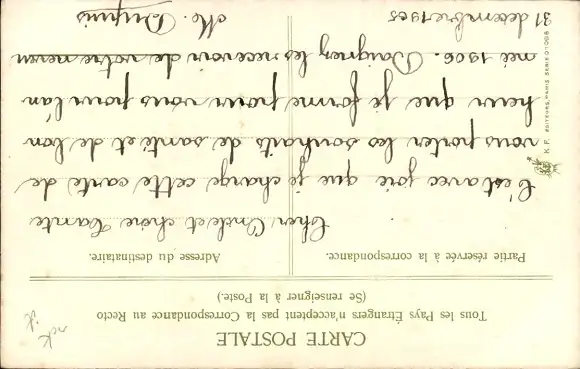 CARTE POSTALE
Tous les Pays Étrangers n'acceptent pas la Correspondance au Recto
(Se renseigner à la Poste.)
Partie réservée à la correspondance.
Adresse du destinataire.
Cher Oncle et chère Tante
C'est avec joie que je charge cette carte de
vous porter les souhaits de santé et de bon
heur que je forme pour vous pour l'an
née 1906. Daignez les recevoir de votre neveu
31 décembre 1905
M. Dupuis
K.F. ÉDITEURS, PARIS SÉRIE